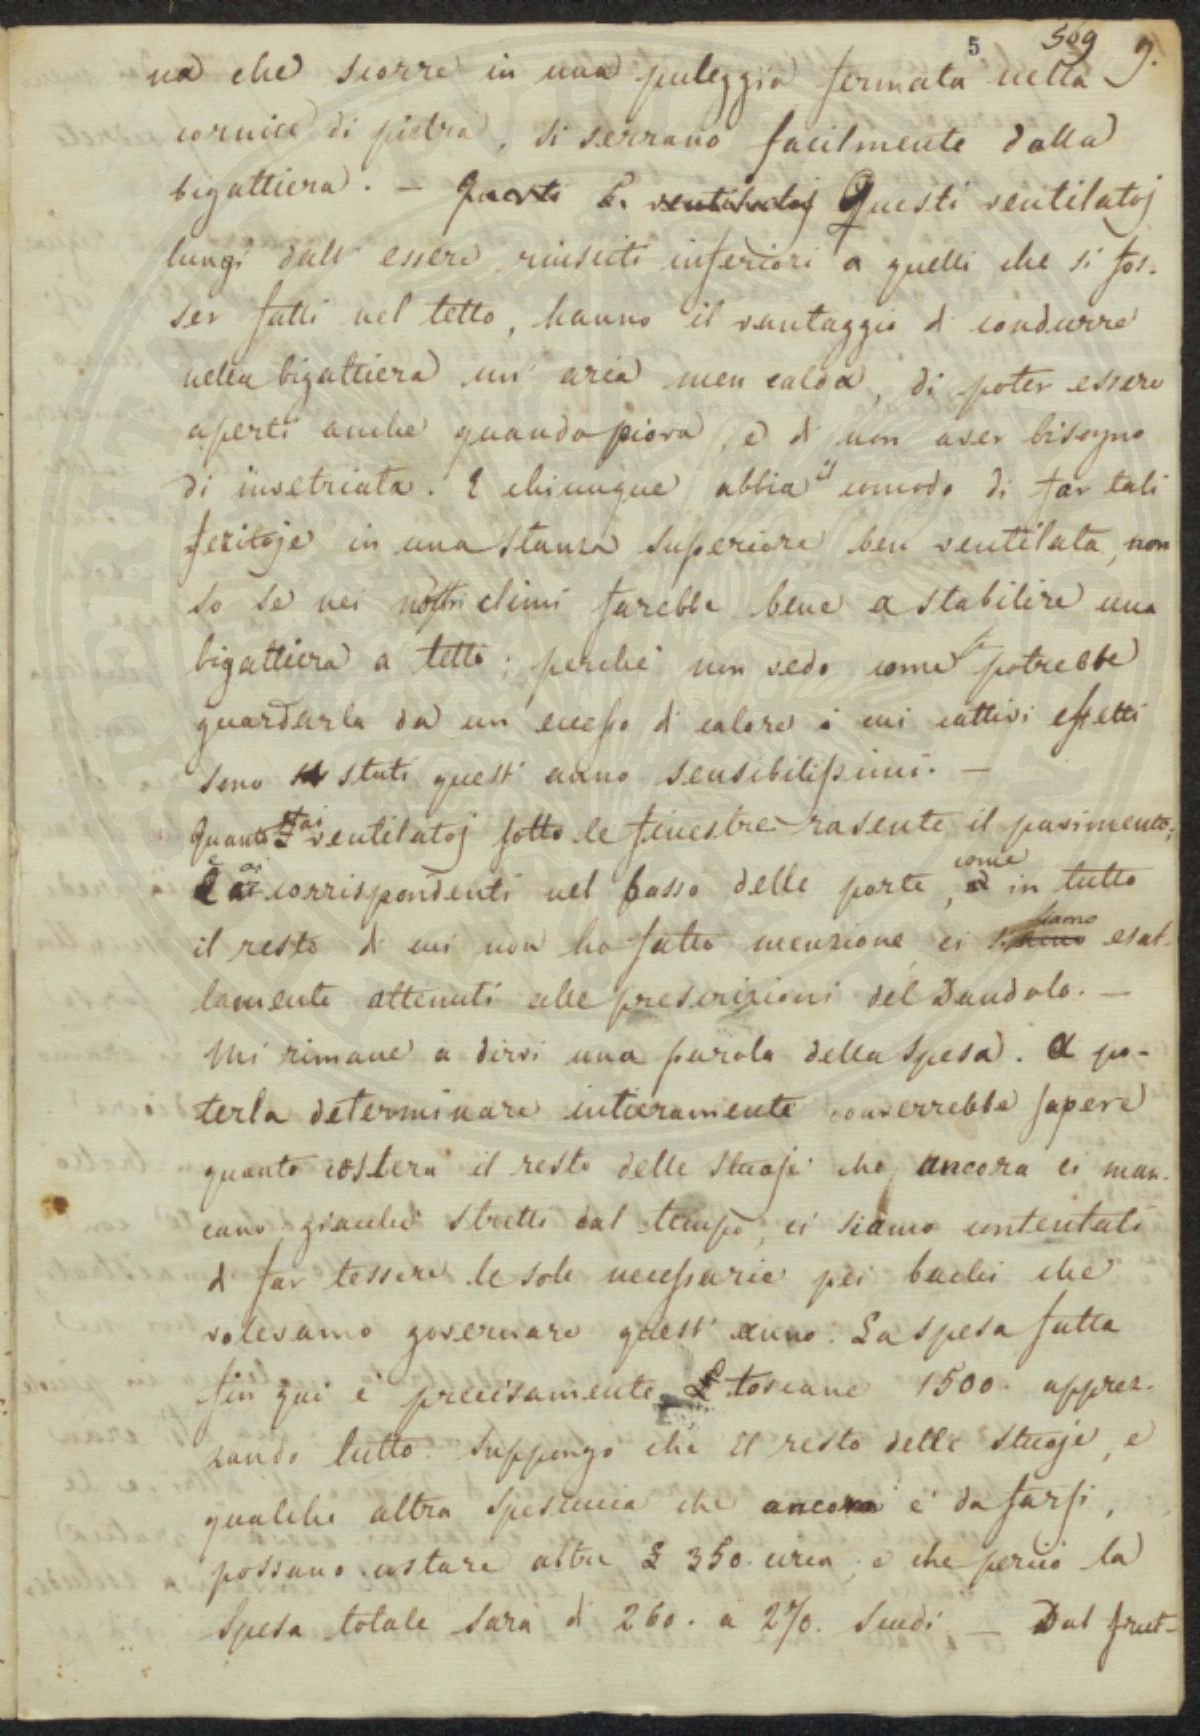 5 509 9.
na che scorre in una puleggia fermata nella
cornice di pietra, si serrano facilmente dalla
bigattiera. — Questi ventilatoj Questi ventilatoj
lungi dall' essere riusciti inferiori a quelli che si fos-
ser fatti nel tetto, hanno il vantaggio di condurre
nella bigattiera un' aria men calda, di poter essere
aperti anche quando piova, e di non aver bisogno
di invetriata. E chiunque abbia il comodo di far tali
feritoje in una stanza superiore ben ventilata, non
so se nei nostri climi farebbe bene a stabilire una
bigattiera a tetto; perché non vedo come potrebbe
guardarla da un eccesso di calore i cui cattivi effetti
sono stati quest' anno sensibilissimi. —
Quanto ai ventilatoj sotto le finestre rasente il pavimento,
e ai corrispondenti nel basso delle porte, come in tutto
il resto di cui non ho fatto menzione, ci siamo esat-
tamente attenuti alle prescrizioni del Dandolo. —
Mi rimane a dirvi una parola della spesa. A po-
terla determinare intieramente converrebbe sapere
quanto costerà il resto delle stuoje che ancora ci man-
cano; giacché stretti dal tempo, ci siamo contentati
di far tessere le sole necessarie pei bachi che
volevamo governare quest' anno. La spesa fatta
fin qui è precisamente £ toscane 1500. apprez-
zando tutto. Suppongo che il resto delle stuoje, e
qualche altra spesuccia che ancora è da farsi,
possano costare altre £ 350. circa, e che perciò la
spesa totale sarà di 260. a 270. scudi. — Dal frut-